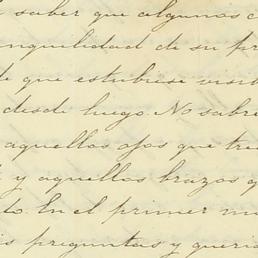 saber que algunas
de su
que estubiese
desde luego. No
aquellos ojos que
y aquellos brazos
En el primer
preguntas y